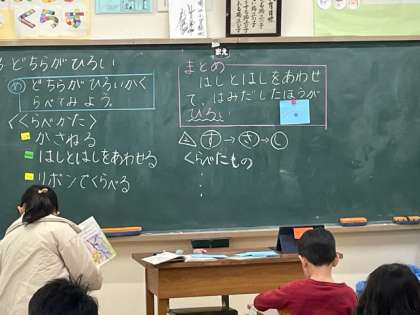 どちらがひろい
め どちらがひろいかくらべてみよう。
どちらがひろいかく
らべてみよう。
<<くらべかた>>
かさねる
はしとはしをあわせる
リボンでくらべる
まえ
まとめ
はしとはしをあわせ
て、はみだしたほうが
ひろい
す→き→し
くらべたもの